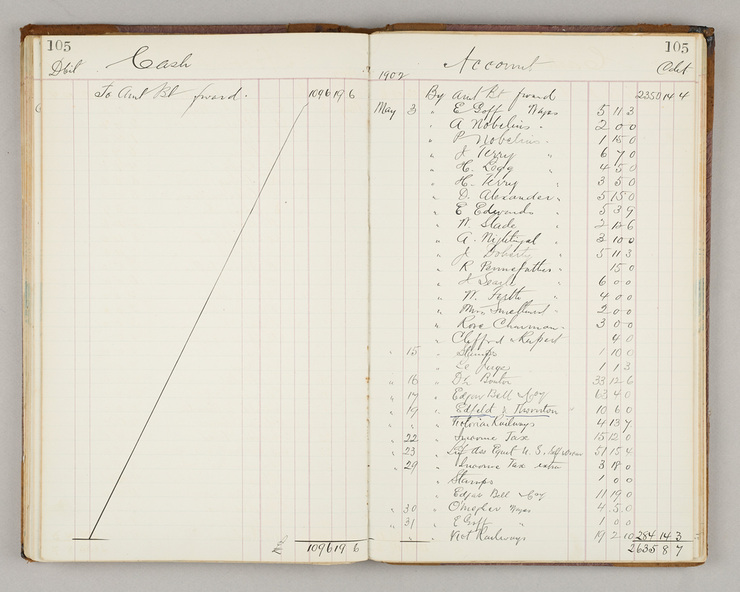 105
Cash
To Amt Bt forward. 1096 19 6
1096 19 6
105
1902 Account
By Amt Bt forward 2350 14 4
May 3 " E Goff Wages 5 11 3
" A Nobelius " 2 0 0
" P Nobelius " 1 15 0
" J. Terry " 6 7 0
" H. Legg " 4 5 0
" H. Terry " 3 5 0
" D. Alexander " 5 15 0
" E Edwards " 5 3 9
" W. Slade " 2 12 6
" A. Nightingal " 3 10 0
" J. Doharty " 5 11 3
" R Pennefather " 15 0
" J Searle " 6 0 0
" W. Firth " 4 0 0
" 2 0 0
" Rose Chapman " 3 0 0
" Clifford & Rupert 4 0
" 15 " Stamps 1 10 0
" 1 1 3
" 16 " 33 12 6
" 17 " Edgar Bell & Coy 63 4 0
" 19 " & Thornton " 10 6 0
" " " Victorian Railways 4 13 7
" 22 " Income Tax 15 12 0
" 23 " U. S. 51 15 4
" 29 " Income Tax 3 18 0
" Stamps 1 0 0
" Edgar Bell & Coy 11 19 0
" 30 " Wages 4 5 0
" 31 " E Goff " 1 0 0
" " Vict Railways 19 2 10 284 14 3
2635 8 7